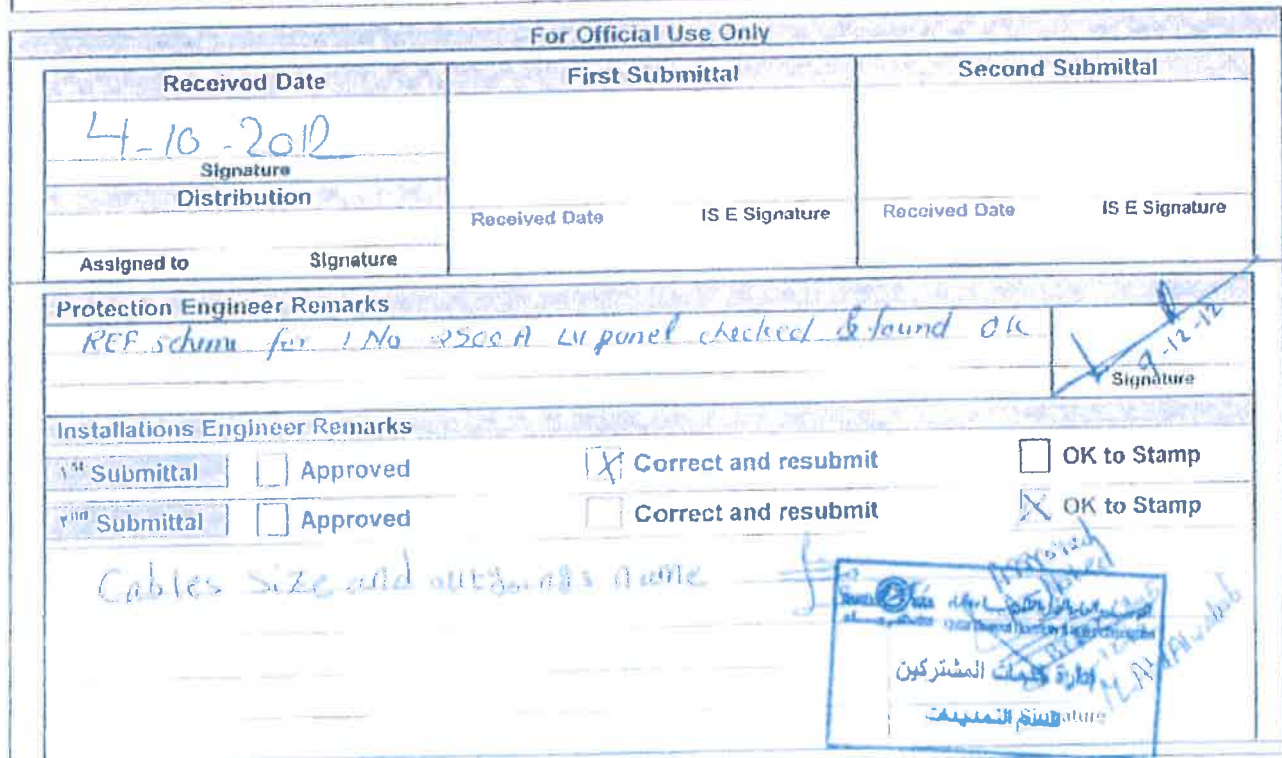 For Official Use Only
Received Date
First Submittal
Second Submittal
4-10-2012
Signature
Distribution
Received Date
IS E Signature
Received Date
IS E Signature
Assigned to
Signature
Protection Engineer Remarks
REF scheme for 1 No 2500 A LV panel checked & found OK
9-12-12
Signature
Installations Engineer Remarks
١st Submittal
Approved
Correct and resubmit
OK to Stamp
٢nd Submittal
Approved
Correct and resubmit
OK to Stamp
Cables size and outgoings name
إدارة خدمات المشتركين
قسم التمديدات